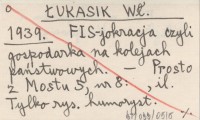 ŁUKASIK Wł.
1939. FIS-jokracja czyli
gospodarka na kolejach
państwowych. — Prosto
z Mostu 5, nr 8. , il.
Tylko rys. humoryst.